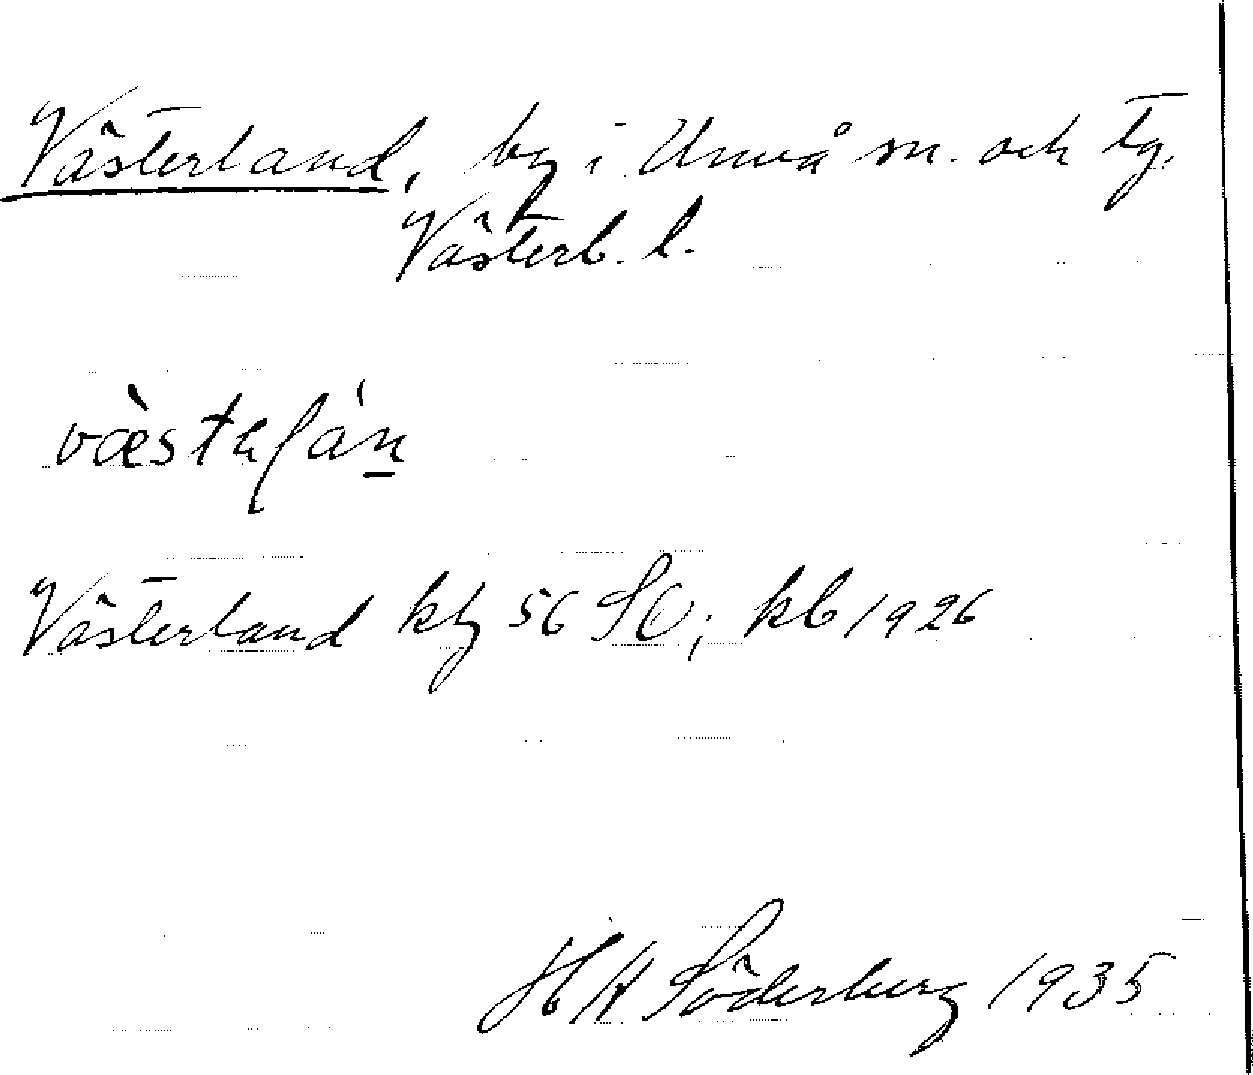 Västerland, by i Umeå sn. och tg.
Västerb. l.
Västerland kbg 56 SO; kb 1926
H H Söderberg 1935